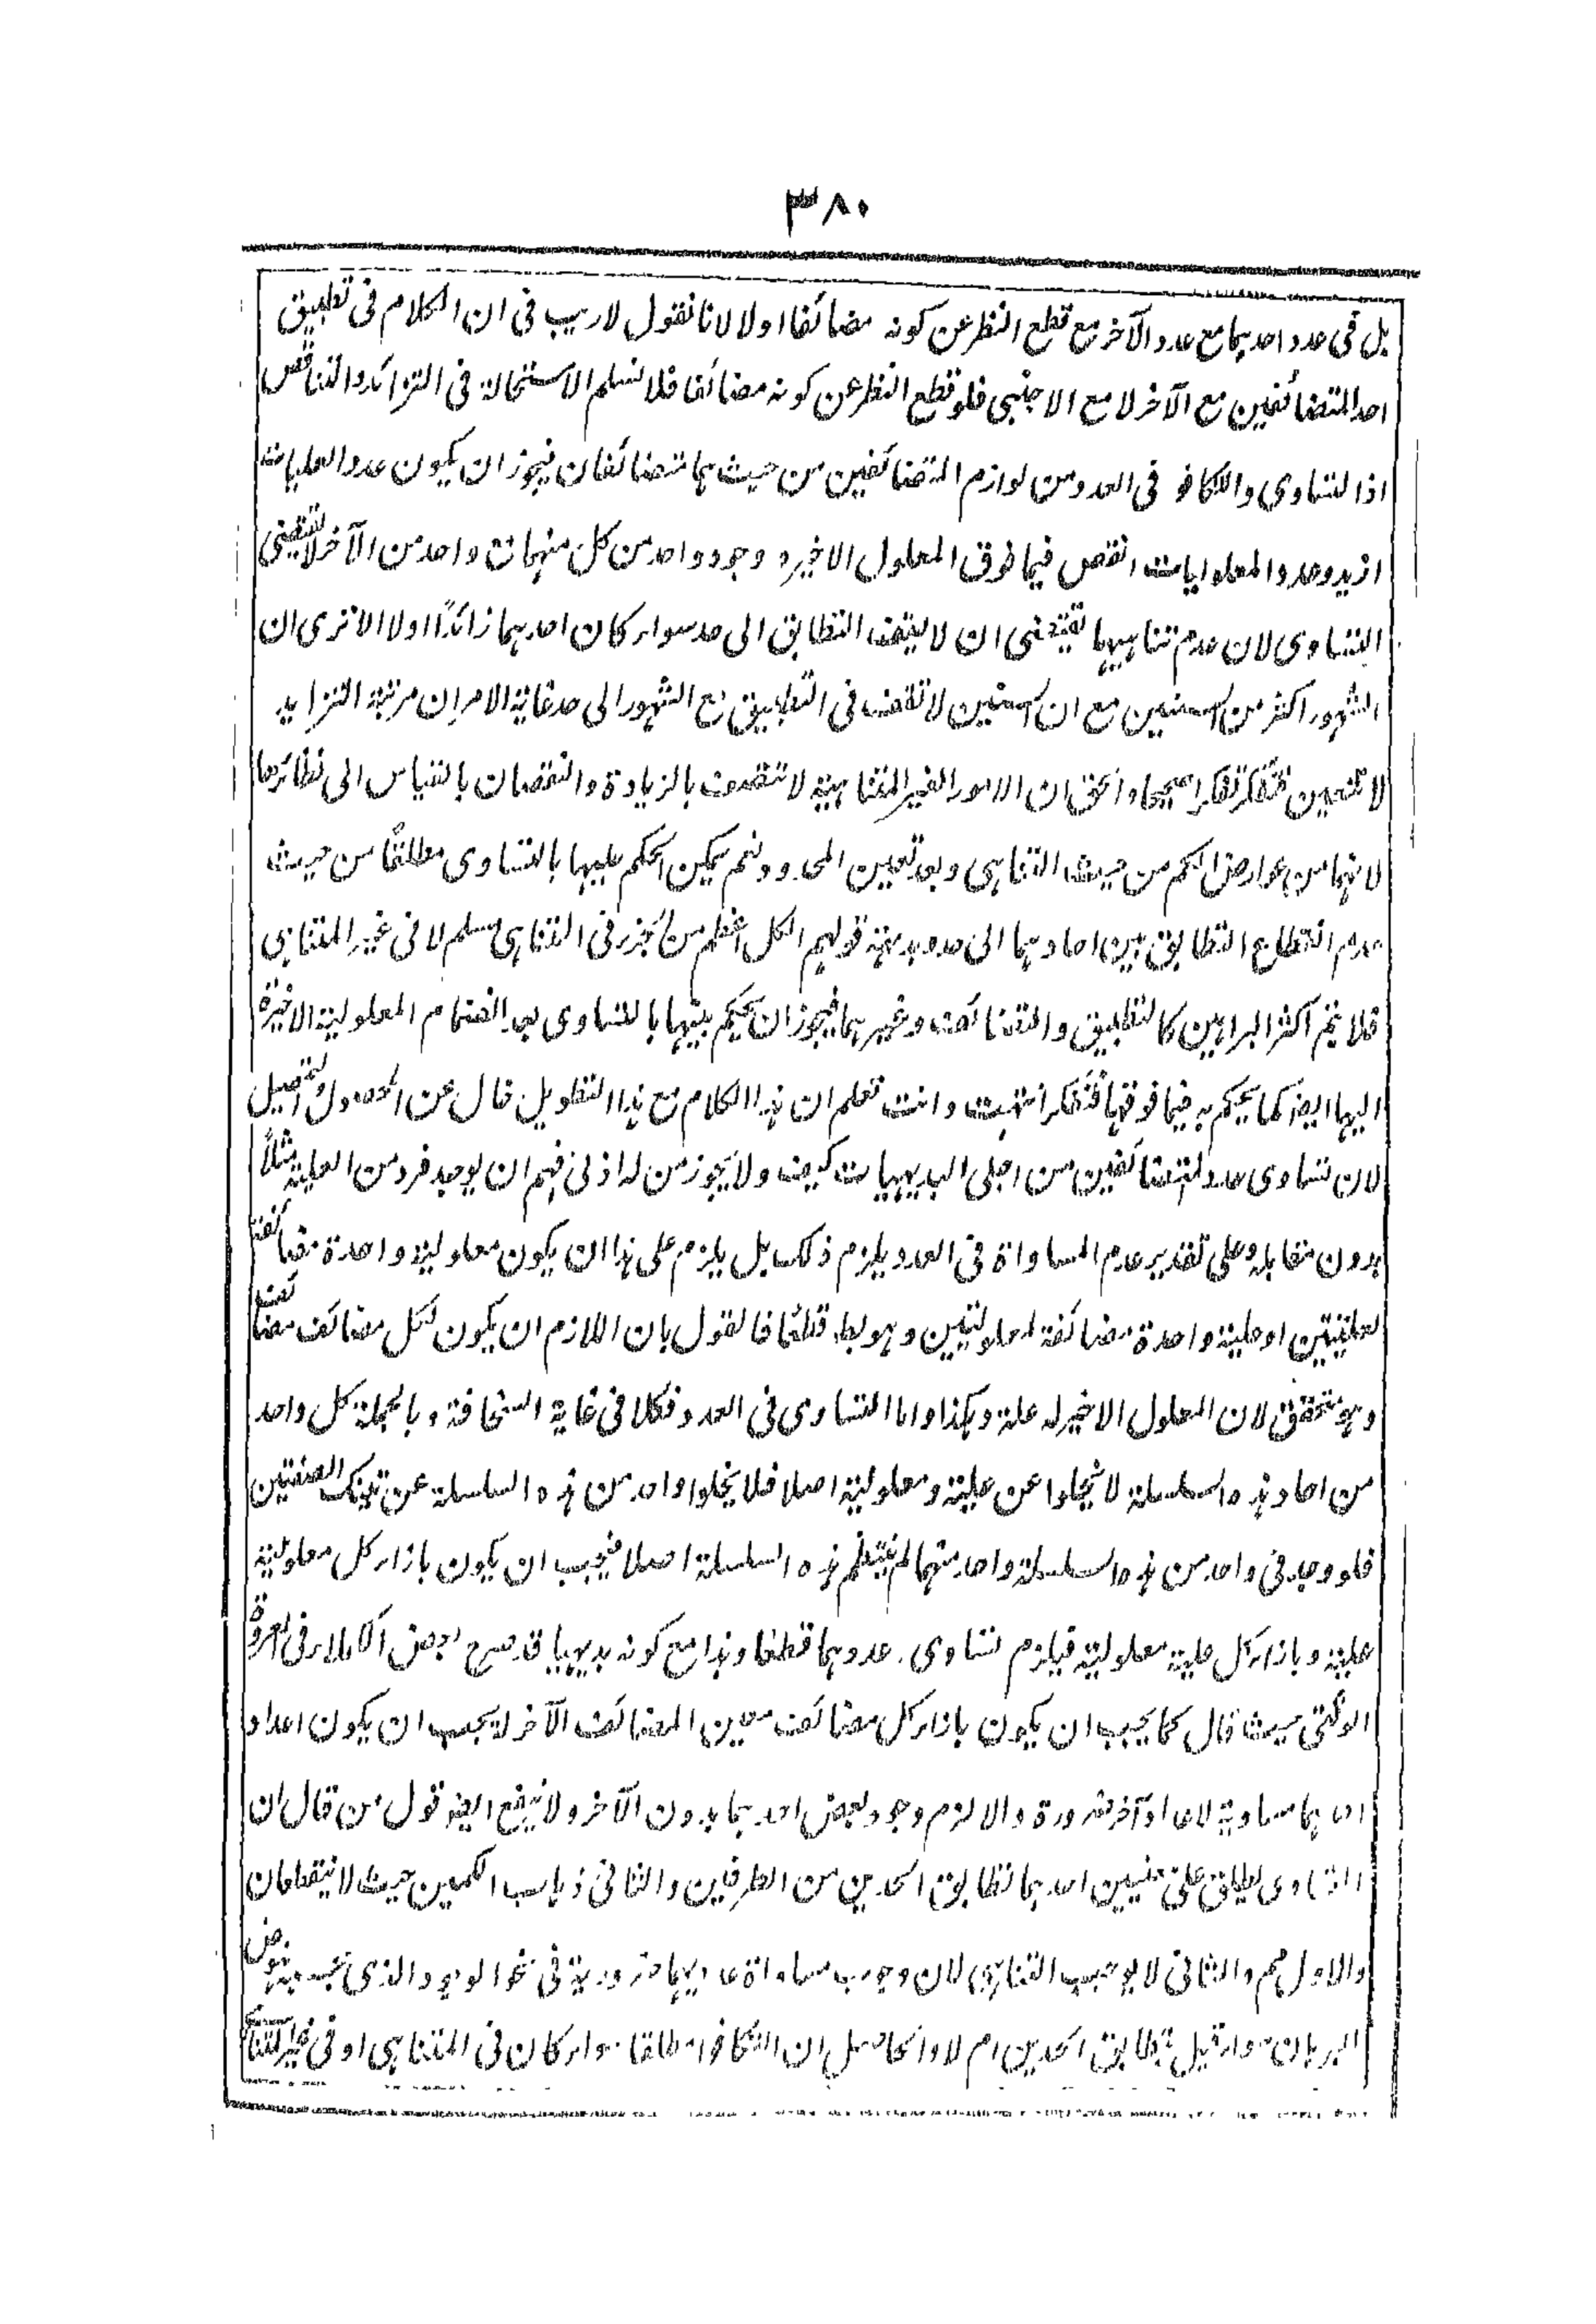 ٣٨٠
بل فى عدد احدهما مع عدد الآخر مع قطع النظر عن كونه مضائفا اولا لانا نقول لا ريب فى ان الكلام فى تطبيق
احد المتضائفين مع الآخر لا مع الاجنبى فلو قطع النظر عن كونه مضائفا فلا نسلم الاستحالة فى التزائد والتناقص
اذ التساوى والتكافو فى العدد من لوازم المتضائفين من حيث هما متضائفان فيجوز ان يكون عدد العليات
ازيد وعدد المعلوليات انقص فيما فوق المعلول الاخير و وجود واحد من كل منهما مع واحد من الآخر لا يقتضى
التساوى لان عدم تناهيهما يقتضى ان لا يقف التطابق الى حد سواء كان احدهما زائدًا اولا الا ترى ان
الشهور اكثر من السنين مع ان السنين لا تقف فى التطبيق مع الشهور الى حد غاية الامر ان مرتبة التزايد
لا تتعين فتفكر تفكرا صحيحا والحق ان الامور الغير المتناهية لا تتصف بالزيادة والنقصان بالقياس الى نظائرها
لانهما من عوارض الكم من حيث التناهى وبعد تعيين الحدود نعم يمكن الحكم عليها بالتساوى مطلقًا من حيث
عدم انقطاع التطابق بين احادهما الى حد وبديهة قولهم الكل اعظم من الجزء فى المتناهى مسلم لا فى غير المتناهى
فلا يتم اكثر البراهين كالتطبيق والتضائف وغيرهما فيجوز ان يحكم بينهما بالتساوى بعد انضمام المعلولية الاخيرة
اليها ايضا كما يحكم به فيما فوقها فتفكر انتهت وانت تعلم ان هذا الكلام مع هذا التطويل خال عن المحصول والتحصيل
لان تساوى عدد المتضائفين من اجلى البديهيات كيف ولا يجوز من له ادنى فهم ان يوجد فرد من العلية مثلًا
بدون مقابله وعلى تقدير عدم المساواة فى العدد يلزم ذلك بل يلزم على هذا ان يكون معلولية واحدة مضائفة
لعليتين او علية واحدة مضائفة لمعلوليتين وهو بط قطعًا فالقول بان اللازم ان يكون لكل مضائف مضائف
وهو متحقق لان المعلول الاخير له علة وهكذا واما التساوى فى العدد فكلا فى غاية السخافة وبالجملة كل واحد
من احاد هذه السلسلة لا يخلوا عن علية ومعلولية اصلا فلا يخلوا واحد من هذه السلسلة عن تينك الصفتين
فلو وجد فى واحد من هذه السلسلة واحد منهما لم ينتظم هذه السلسلة اصلا فيجب ان يكون بازاء كل معلولية
علية وبازاء كل علية معلولية فيلزم تساوى عددهما قطعا وهذا مع كونه بديهيا قد صرح بعض الاكابر فى العروة
الوثقى حيث قال كما يجب ان يكون بازاء كل مضائف معين المضائف الآخر له يجب ان يكون اعداد
احدهما مساوية لاعداد آخر ضرورة والا لزم وجود بعض احدهما بدون الآخر ولا ينفع ايضا قول من قال ان
التساوى يطلق على معنيين احدهما تطابق الحدين من الطرفين والثانى ذهاب الكمين حيث لا ينقطعان
والاول مم والثانى لا يوجب التناهى لان وجوب مساواة عدديهما ضرورية فى نحو الوجود والذى عبد ينهض
البرهان سواء قيل بتطابق الحدين ام لا والحاصل ان التكافوء مطلقا سواء كان فى المتناهى او فى غير المتناهى